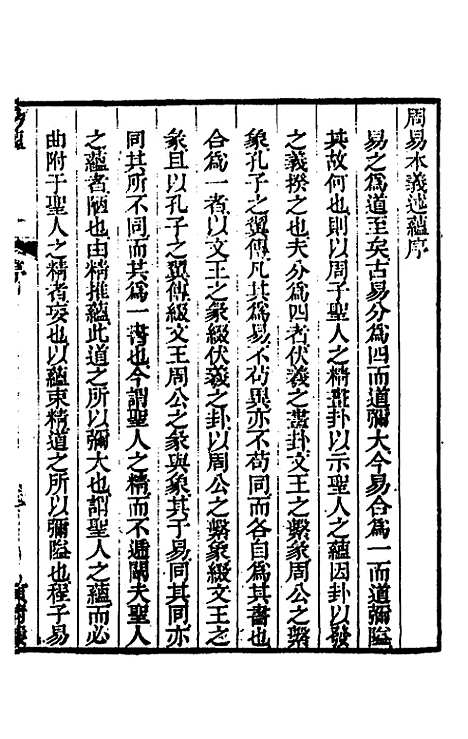 周易本義述蘊序
易之爲道至矣古易分爲四而道彌大今易合爲一而道彌隘
其故何也則以周子聖人之精畫卦以示聖人之蘊因卦以發
之義揆之也夫分爲四者伏羲之畫卦文王之彖周公之繫
象孔子之翼傳凡其爲易不苟異亦不苟同而各自爲其書也
合爲一者以文王之彖綴伏羲之卦以周公之繫象綴文王之
彖且以孔子之翼傳綴文王周公之彖與象其于易同其同亦
同其所不同而其爲一書也今謂聖人之精而不遞關夫聖人
之蘊者陋也由精推蘊此道之所以彌大也謂聖人之蘊而必
曲附于聖人之精者妄也以蘊束精道之所以彌隘也程子易
序